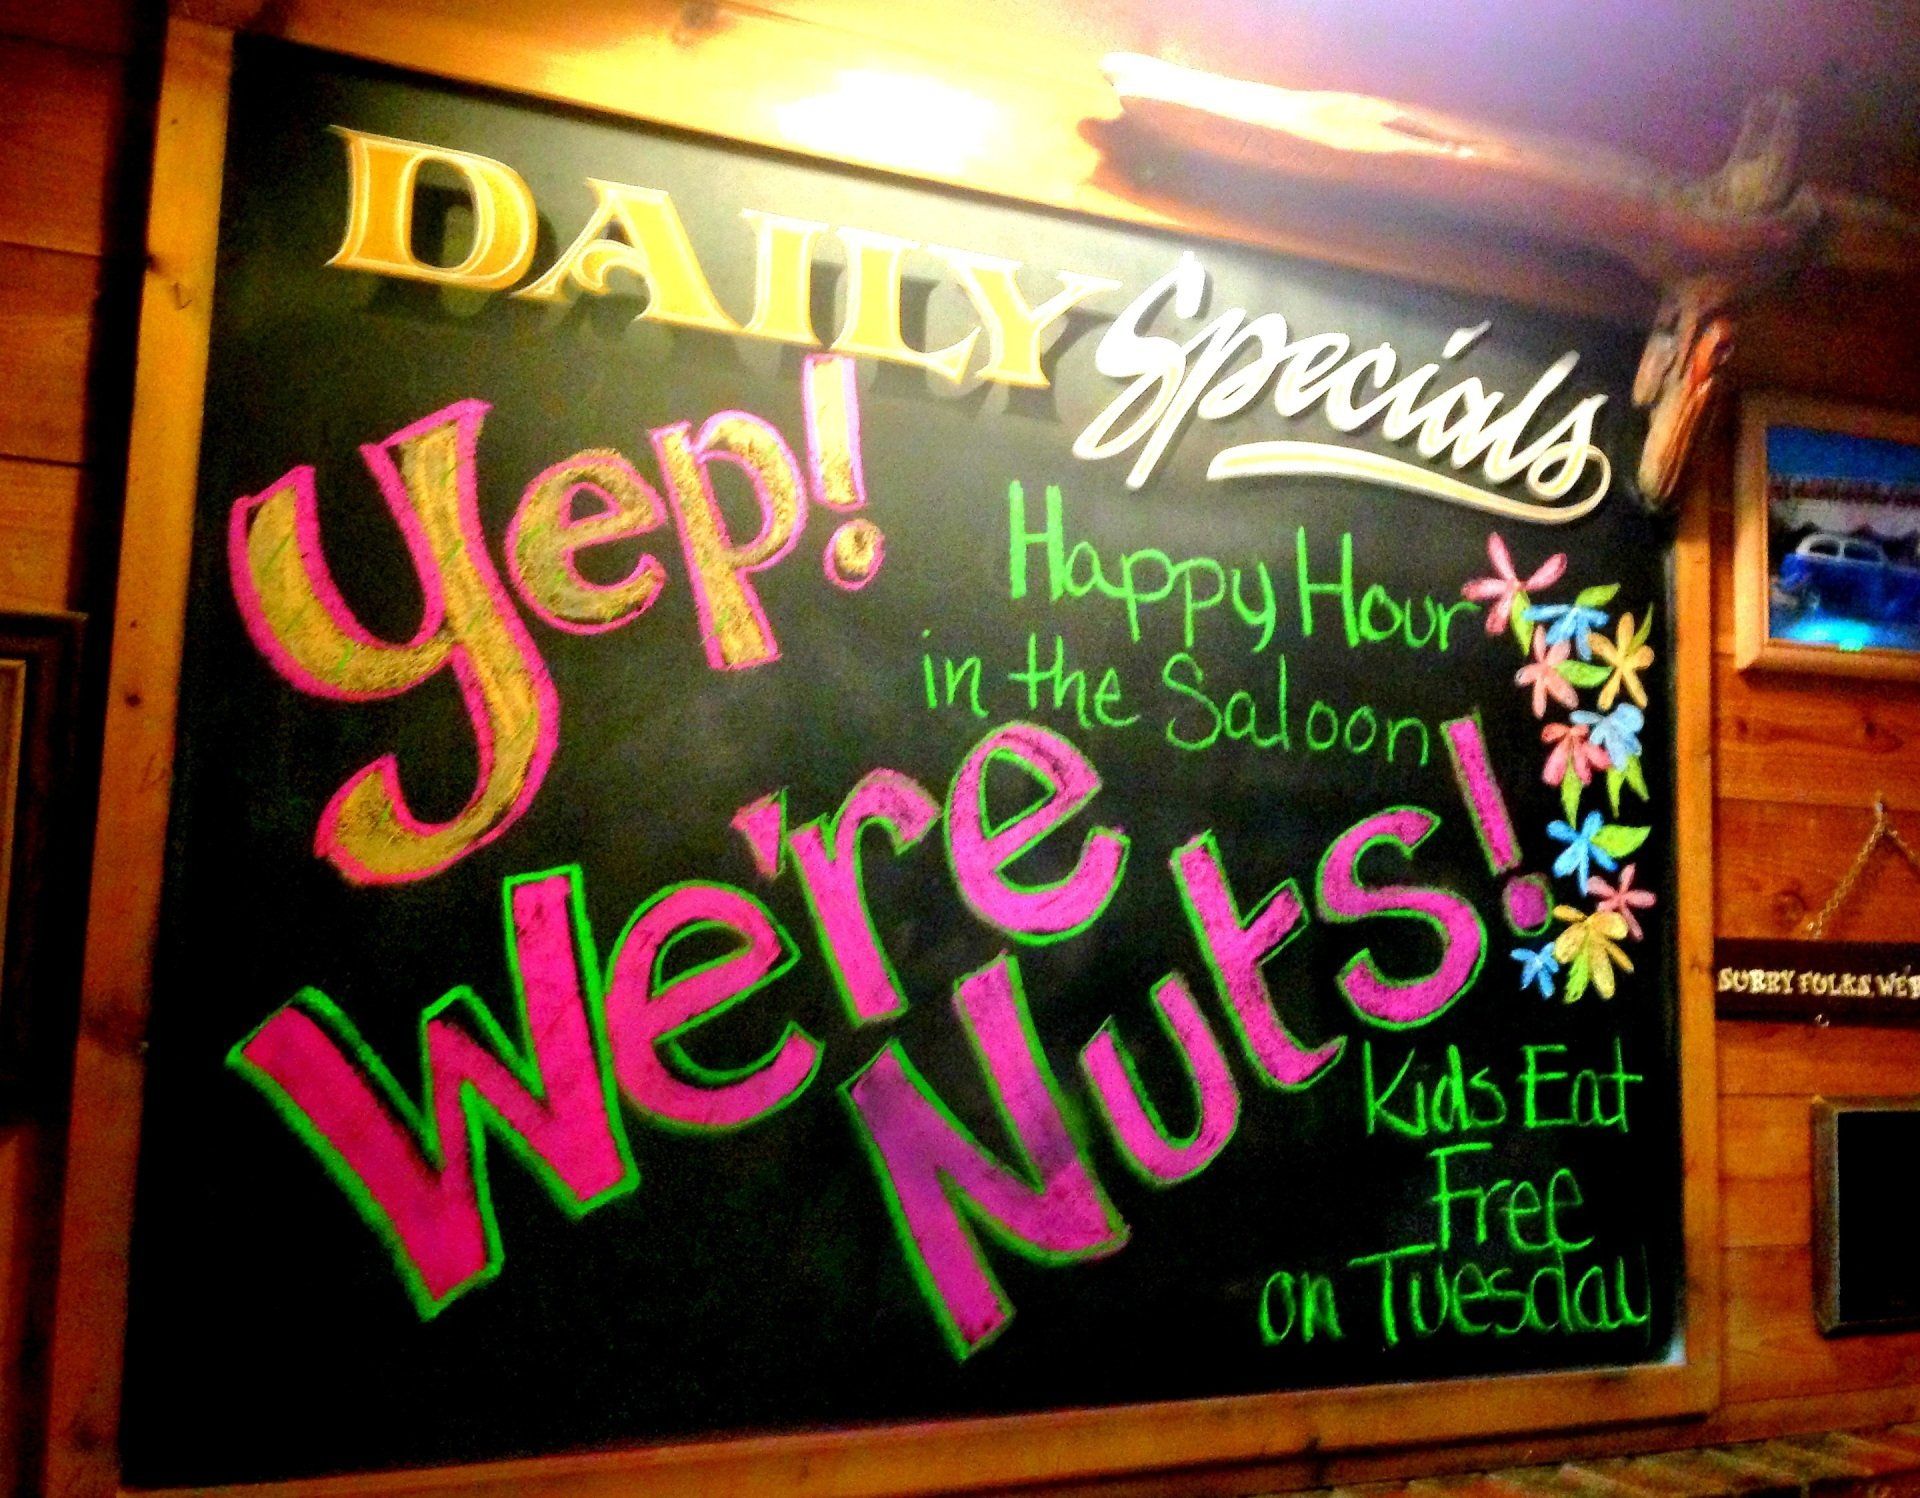 DAILY Specials
Yep!
Happy Hour
in the Saloon
We're
Nuts!
Kids Eat
Free
on Tuesday
FOLKS, WE'